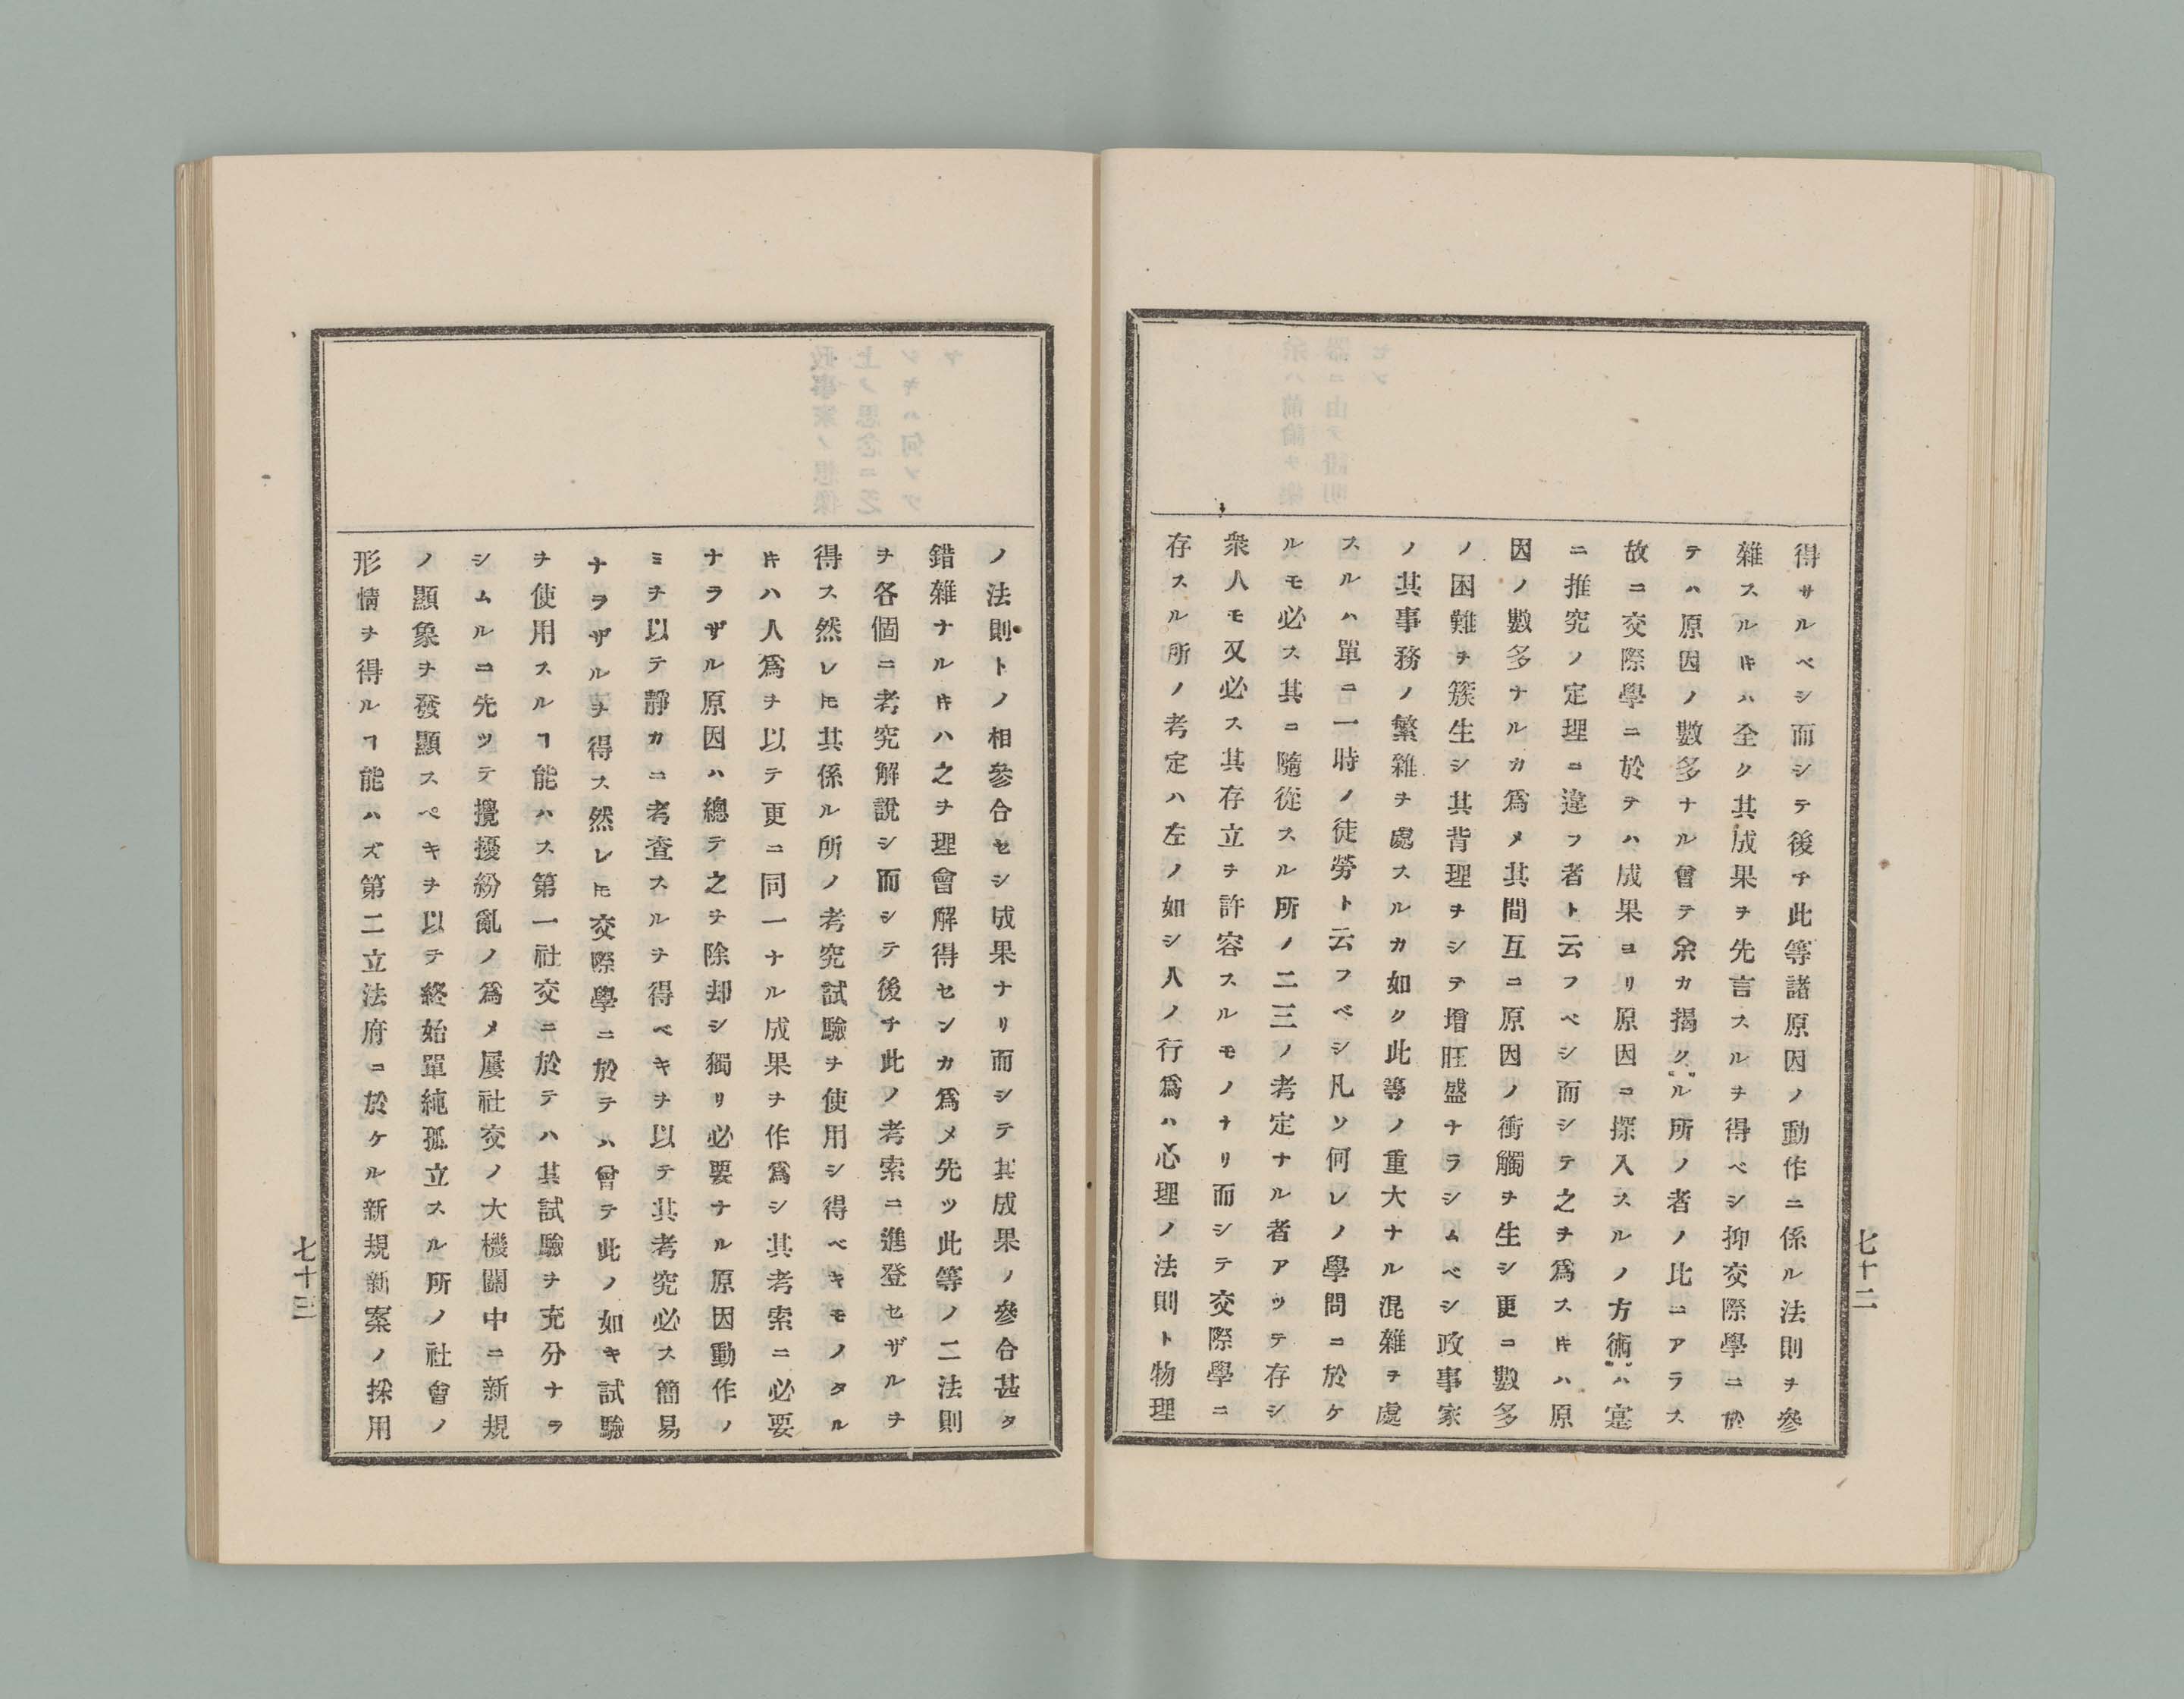 得サルベシ而シテ後チ此等諸原因ノ動作ニ係ル法則ヲ參
雜スルキハ全ク其成果ヲ先言スルヲ得ベシ抑交際學ニ於
テハ原因ノ數多ナル曾テ余カ揭クル所ノ者ノ比ニアラス
故ニ交際學ニ於テハ成果ヨリ原因ニ探入スルノ方術ハ寔
ニ推究ノ定理ニ違フ者ト云フベシ而シテ之ヲ爲スキハ原
因ノ數多ナルカ爲メ其間互ニ原因ノ衝觸ヲ生シ更ニ數多
ノ困難ヲ簇生シ其背理ヲシテ增旺盛ナラシムベシ政事家
ノ其事務ノ繁雜ヲ處スルカ如ク此等ノ重大ナル混雜ヲ處
スルハ單ニ一時ノ徒勞ト云フベシ凡ソ何レノ學問ニ於ケ
ルモ必ス其ニ隨從スル所ノ二三ノ考定ナル者アッテ存シ
衆人モ又必ス其存立ヲ許容スルモノナリ而シテ交際學ニ
存スル所ノ考定ハ左ノ如シ人ノ行爲ハ心理ノ法則ト物理
七十二
ノ法則トノ相參合セシ成果ナリ而シテ其成果ノ參合甚タ
錯雜ナルキハ之ヲ理會解得センカ爲メ先ツ此等ノ二法則
ヲ各個ニ考究解說シ而シテ後チ此ノ考索ニ進登セザルヲ
得ス然レ𪜈其係ル所ノ考究試驗ヲ使用シ得ベキモノタル
キハ人爲ヲ以テ更ニ同一ナル成果ヲ作爲シ其考索ニ必要
ナラザル原因ハ總テ之ヲ除却シ獨リ必要ナル原因動作ノ
ミヲ以テ靜カニ考査スルヲ得ベキヲ以テ其考究必ス簡易
ナラザルヲ得ス然レ𪜈交際學ニ於テハ曾テ此ノ如キ試驗
ヲ使用スルヿ能ハス第一社交ニ於テハ其試驗ヲ充分ナラ
シムルニ先ツテ攪擾紛亂ノ爲メ屢社交ノ大機關中ニ新規
ノ顯象ヲ發顯スペキヲ以テ終始單純孤立スル所ノ社會ノ
形情ヲ得ルヿ能ハズ第二立法府ニ於ケル新規新案ノ採用
七十三